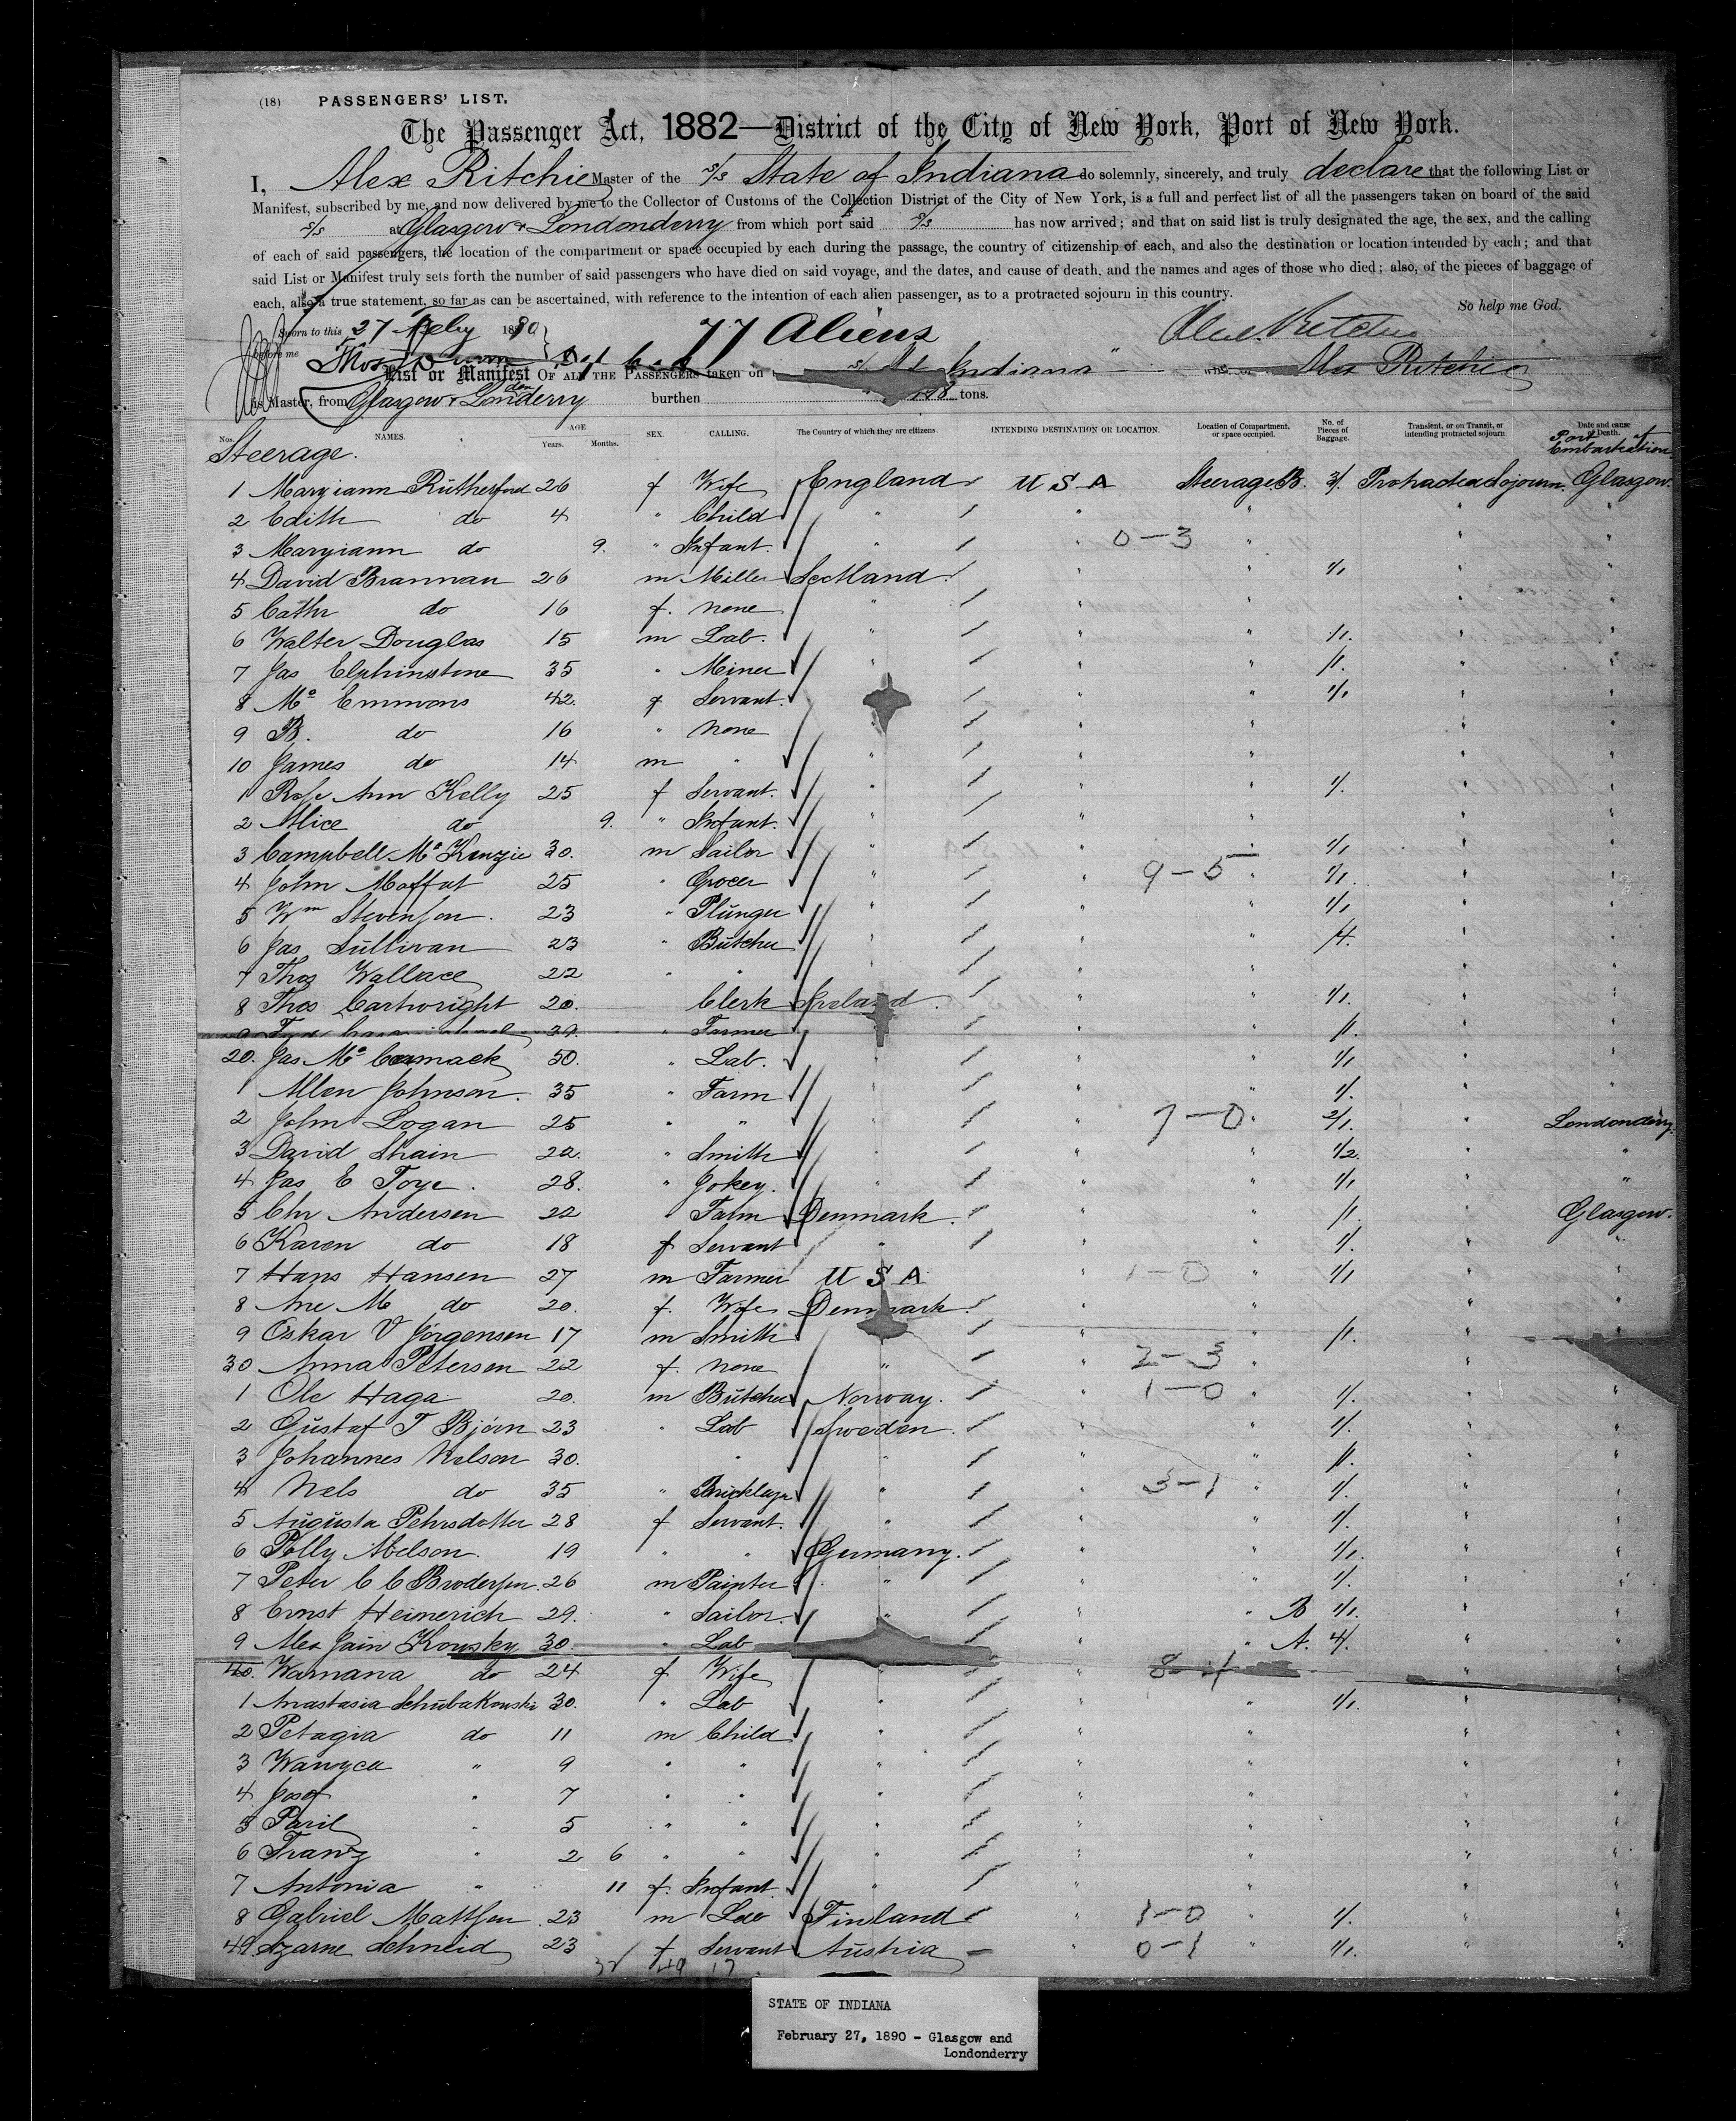 (18) PASSENGERS' LIST.
The Passenger Act, 1882—District of the City of New York, Port of New York.
I, Alex Ritchie Master of the s/s State of Indiana do solemnly, sincerely, and truly declare that the following List or
Manifest, subscribed by me, and now delivered by me to the Collector of Customs of the Collection District of the City of New York, is a full and perfect list of all the passengers taken on board of the said
s/s at Glasgow & Londonderry from which port said s/s has now arrived; and that on said list is truly designated the age, the sex, and the calling
of each of said passengers, the location of the compartment or space occupied by each during the passage, the country of citizenship of each, and also the destination or location intended by each; and that
said List or Manifest truly sets forth the number of said passengers who have died on said voyage, and the dates, and cause of death, and the names and ages of those who died; also, of the pieces of baggage of
each, also a true statement, so far as can be ascertained, with reference to the intention of each alien passenger, as to a protracted sojourn in this country.
So help me God.
Sworn to this 27 Feby 1890
before me
77 Aliens
Alex. Ritchie
List or Manifest OF ALL THE PASSENGERS taken on Indiana Alex Ritchie
is Master, from Glasgow & Londonderry burthen 188 tons.
Nos. NAMES. AGE Years. Months. SEX. CALLING. The Country of which they are citizens. INTENDING DESTINATION OR LOCATION. Location of Compartment, or space occupied. No. of Pieces of Baggage. Transient, or on Transit, or intending protracted sojourn. Date and cause of Death.
Port of Embarkation
Steerage.
1 Maryiann Rutherford 26 f Wife England U S A Steerage B. 3/. Protracted Sojourn. Glasgow.
2 Edith do 4 " Child " " " " "
3 Maryiann do 9. " Infant. " " 0-3 " " "
4 David Brannan 26 m Miller Scotland. " " 1/1 " "
5 Cathr do 16 f. none " " " " "
6 Walter Douglas 15 m Lab. " " " 1/1. " "
7 Jas Elphinstone 35 " Miner " " " 1/. " "
8 Mc Emmons 42. f Servant. " " 1/1 " "
9 B. do 16 " none " " " " "
10 James do 14 m " " " " " "
1 Rose Ann Kelly 25 f Servant. " " " 1/. " "
2 Alice do 9. " Infant. " " " " "
3 Campbell McKenzie 30. m Sailor " " " 1/1 " "
4 John Moffat 25 " Grocer " " 9-5 " 1/1. " "
5 Wm Stevenson. 23 " Plunger " " " 1/1 " "
6 Jas Sullivan 23 " Butcher " " " 1/1. " "
7 Thos Wallace 22 " " " " " " "
8 Thos Cartwright 20. Clerk Ireland. " " 1/1. " "
9 29. " Farmer " " 1/. " "
20. Jas McCormack 50. " Lab. " " " 1/1 " "
1 Allen Johnson. 35 " Farm " " " 1/. " "
2 John Logan 25 " " " " 7-0 " 2/1. " Londonderry.
3 David Shain 22. " Smith " " " 1/2. " "
4 Jas E Toye. 28. " Jokey. " " " 1/1 " "
5 Chr Andersen 22 " Farm Denmark. " " 1/. " Glasgow.
6 Karen do 18 f Servant " " " 1/. " "
7 Hans Hansen 27 m Farmer U S A " 1-0 " 1/1 " "
8 Ane M do 20. f. Wife Denmark. " " " "
9 Oskar V Jörgensen 17 m Smith " " 1/. " "
30 Anna Petersen 22 f. none " " 2-3 " " "
1 Ole Haga 20. m Butcher Norway. " 1-0 " 1/. " "
2 Gustaf T Bjórn 23 " Lab Sweden. " " 1/. " "
3 Johannes Nelson 30. " " " " 1/. " "
4 Nels do 35 " Bricklayr " " 3-1 " 1/. " "
5 Augusta Pehrsdotter 28 f Servant. " " " 1/. " "
6 Polly Abelson. 19 " " Germany. " " 1/1. " "
7 Peter C C Brodersen. 26 m Painter " " " 1/. " "
8 Ernst Heinerich 29. " Sailor. " " " B 1/1. " "
9 Alex Jain Kousky 30. " Lab " " A. 4/. " "
40. Warnana do 24 f. Wife " " " "
1 Anastasia Schubakouski 30. " Lab " " " 1/1. " "
2 Petagia do 11 m Child " " " " "
3 Wanyca " 9 " " " " " " "
4 Josef " 7 " " " " " " "
5 Paril " 5 " " " " " " "
6 Franz " 2 6 " " " " " " "
7 Antonia " 11 f. Infant. " " " " "
8 Gabriel Mattsen. 23 m Lab Finland " 1-0 " 1/. " "
49. Szarne Schneid 23 f Servant Austria — " 0-1 " 1/1. " "
32 49 17
STATE OF INDIANA
February 27, 1890 - Glasgow and
Londonderry